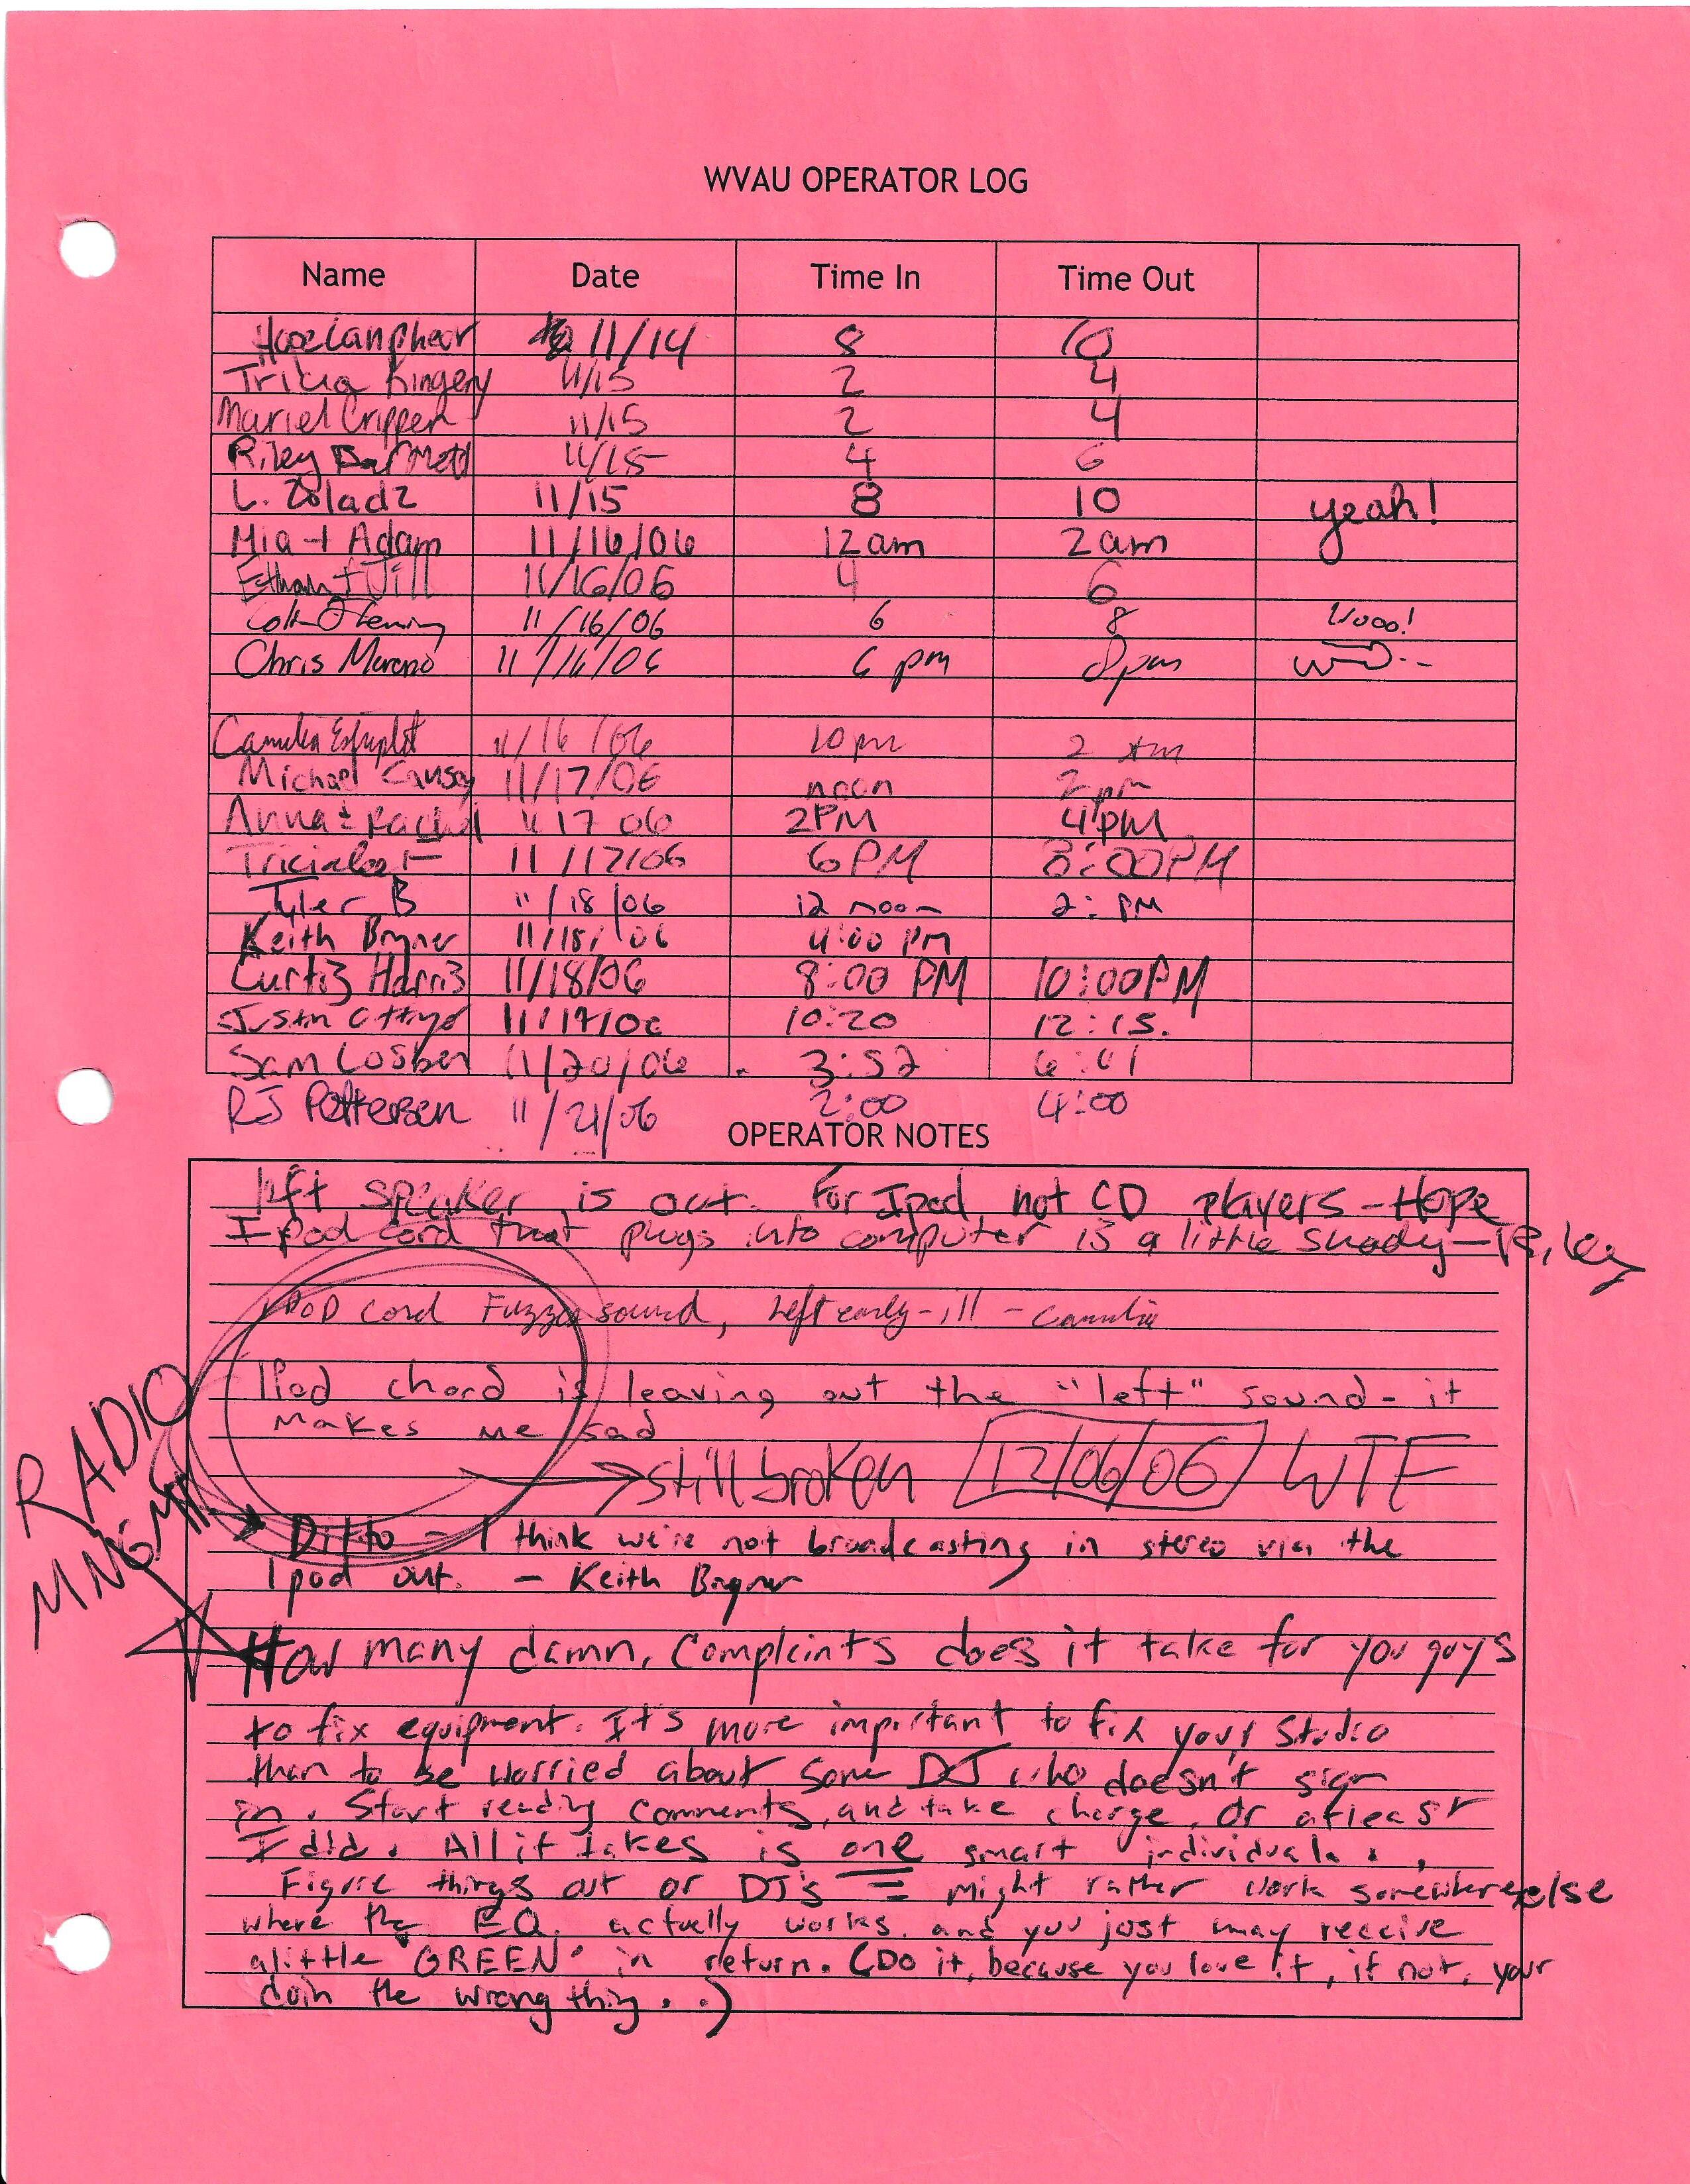 WVAU OPERATOR LOG
Name Date Time In Time Out
Hope Lanphear 11/14 8 10
Tricia Kingery 11/15 2 4
Mariel Crippen 11/15 2 4
Riley 11/15 4 6
L. Zoladz 11/15 8 10 yeah!
Mia + Adam 11/16/06 12am 2am
Ethan + Jill 11/16/06 4 6
11/16/06 6 8 Wooo!
Chris Moreno 11/16/06 6 pm 8pm
Camilia 11/16/06 10pm 2 am
Michael Causey 11/17/06 noon 2pm
Anna + Rachel 11 17 06 2PM 4PM
11/17/06 6PM 8:00PM
Tyler B 11/18/06 12 noon 2: PM
Keith Bryner 11/18/06 4:00 PM
Curti3 Harri3 11/18/06 8:00 PM 10:00PM
Justin 10:20 12:15.
Sam 11/20/06 3:52 6:01
RJ Pettersen 11/21/06 2:00 4:00
OPERATOR NOTES
left speaker is out. For Ipod, not CD players - Hope
Ipod cord that plugs into computer is a little shady - Riley
IPOD cord Fuzzy sound, left early - ill - Camilia
IPod chord is leaving out the "left" sound - it
makes me sad
still broken 12/06/06 WTF
RADIO
MNGMT
Ditto - I think we're not broadcasting in stereo via the
Ipod out. - Keith Bryner
How many damn, Complaints does it take for you guys
to fix equipment. It's more important to fix your Studio
than to be worried about some DJ who doesn't sign
in. Start reading comments, and take charge, or atleast
I did. All it takes is one smart individual..
Figure things out or DJ's might rather work somewhere else
where the EQ. actually works. and you just may receive
alittle "GREEN" in return. (Do it, because you love it, if not, your
doin the wrong thing..)